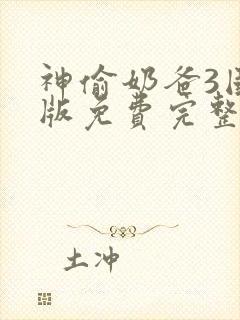 神偷奶爸3国
版免费完整
土冲